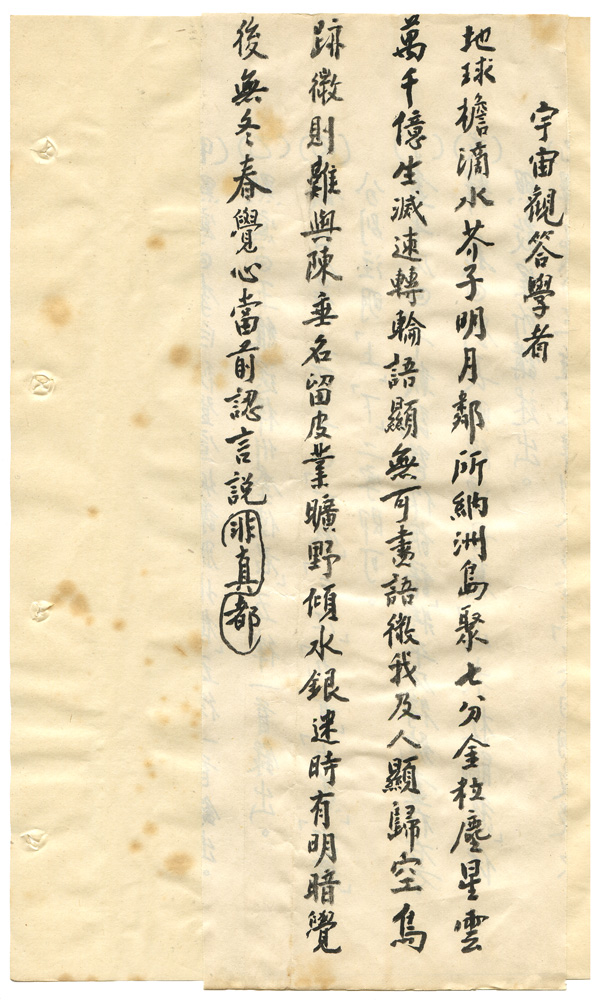 宇宙觀答學者
地球檐滴水芥子明月鄰所納洲島聚七分金粒塵星雲
萬千億生滅速轉輪語顯無可畫語微我及人顯歸空鳥
跡微則難與陳垂名留皮業曠野傾水銀迷時有明暗覺
後無冬春覺心當前認言說非真都